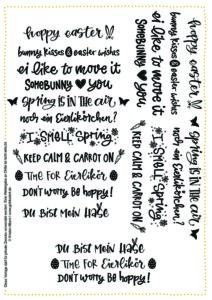 happy easter
bunny kisses & easter wishes
ei like to move it
SOMEBUNNY ♥ YOU
spring is in the air
noch ein Eierlikörchen?
I SMELL Spring
KEEP CALM & CARROT ON
TIME FOR Eierlikör
DON'T WORRY Be hoppy!
DU BIST MEIN HASE
DU BIST MEIN HASE
TIME FOR Eierlikör
DON'T WORRY Be hoppy!
happy easter
bunny kisses & easter wishes
ei like to move it
SOMEBUNNY ♥ YOU
spring is in the air
noch ein Eierlikörchen?
I SMELL Spring
KEEP CALM & CARROT ON